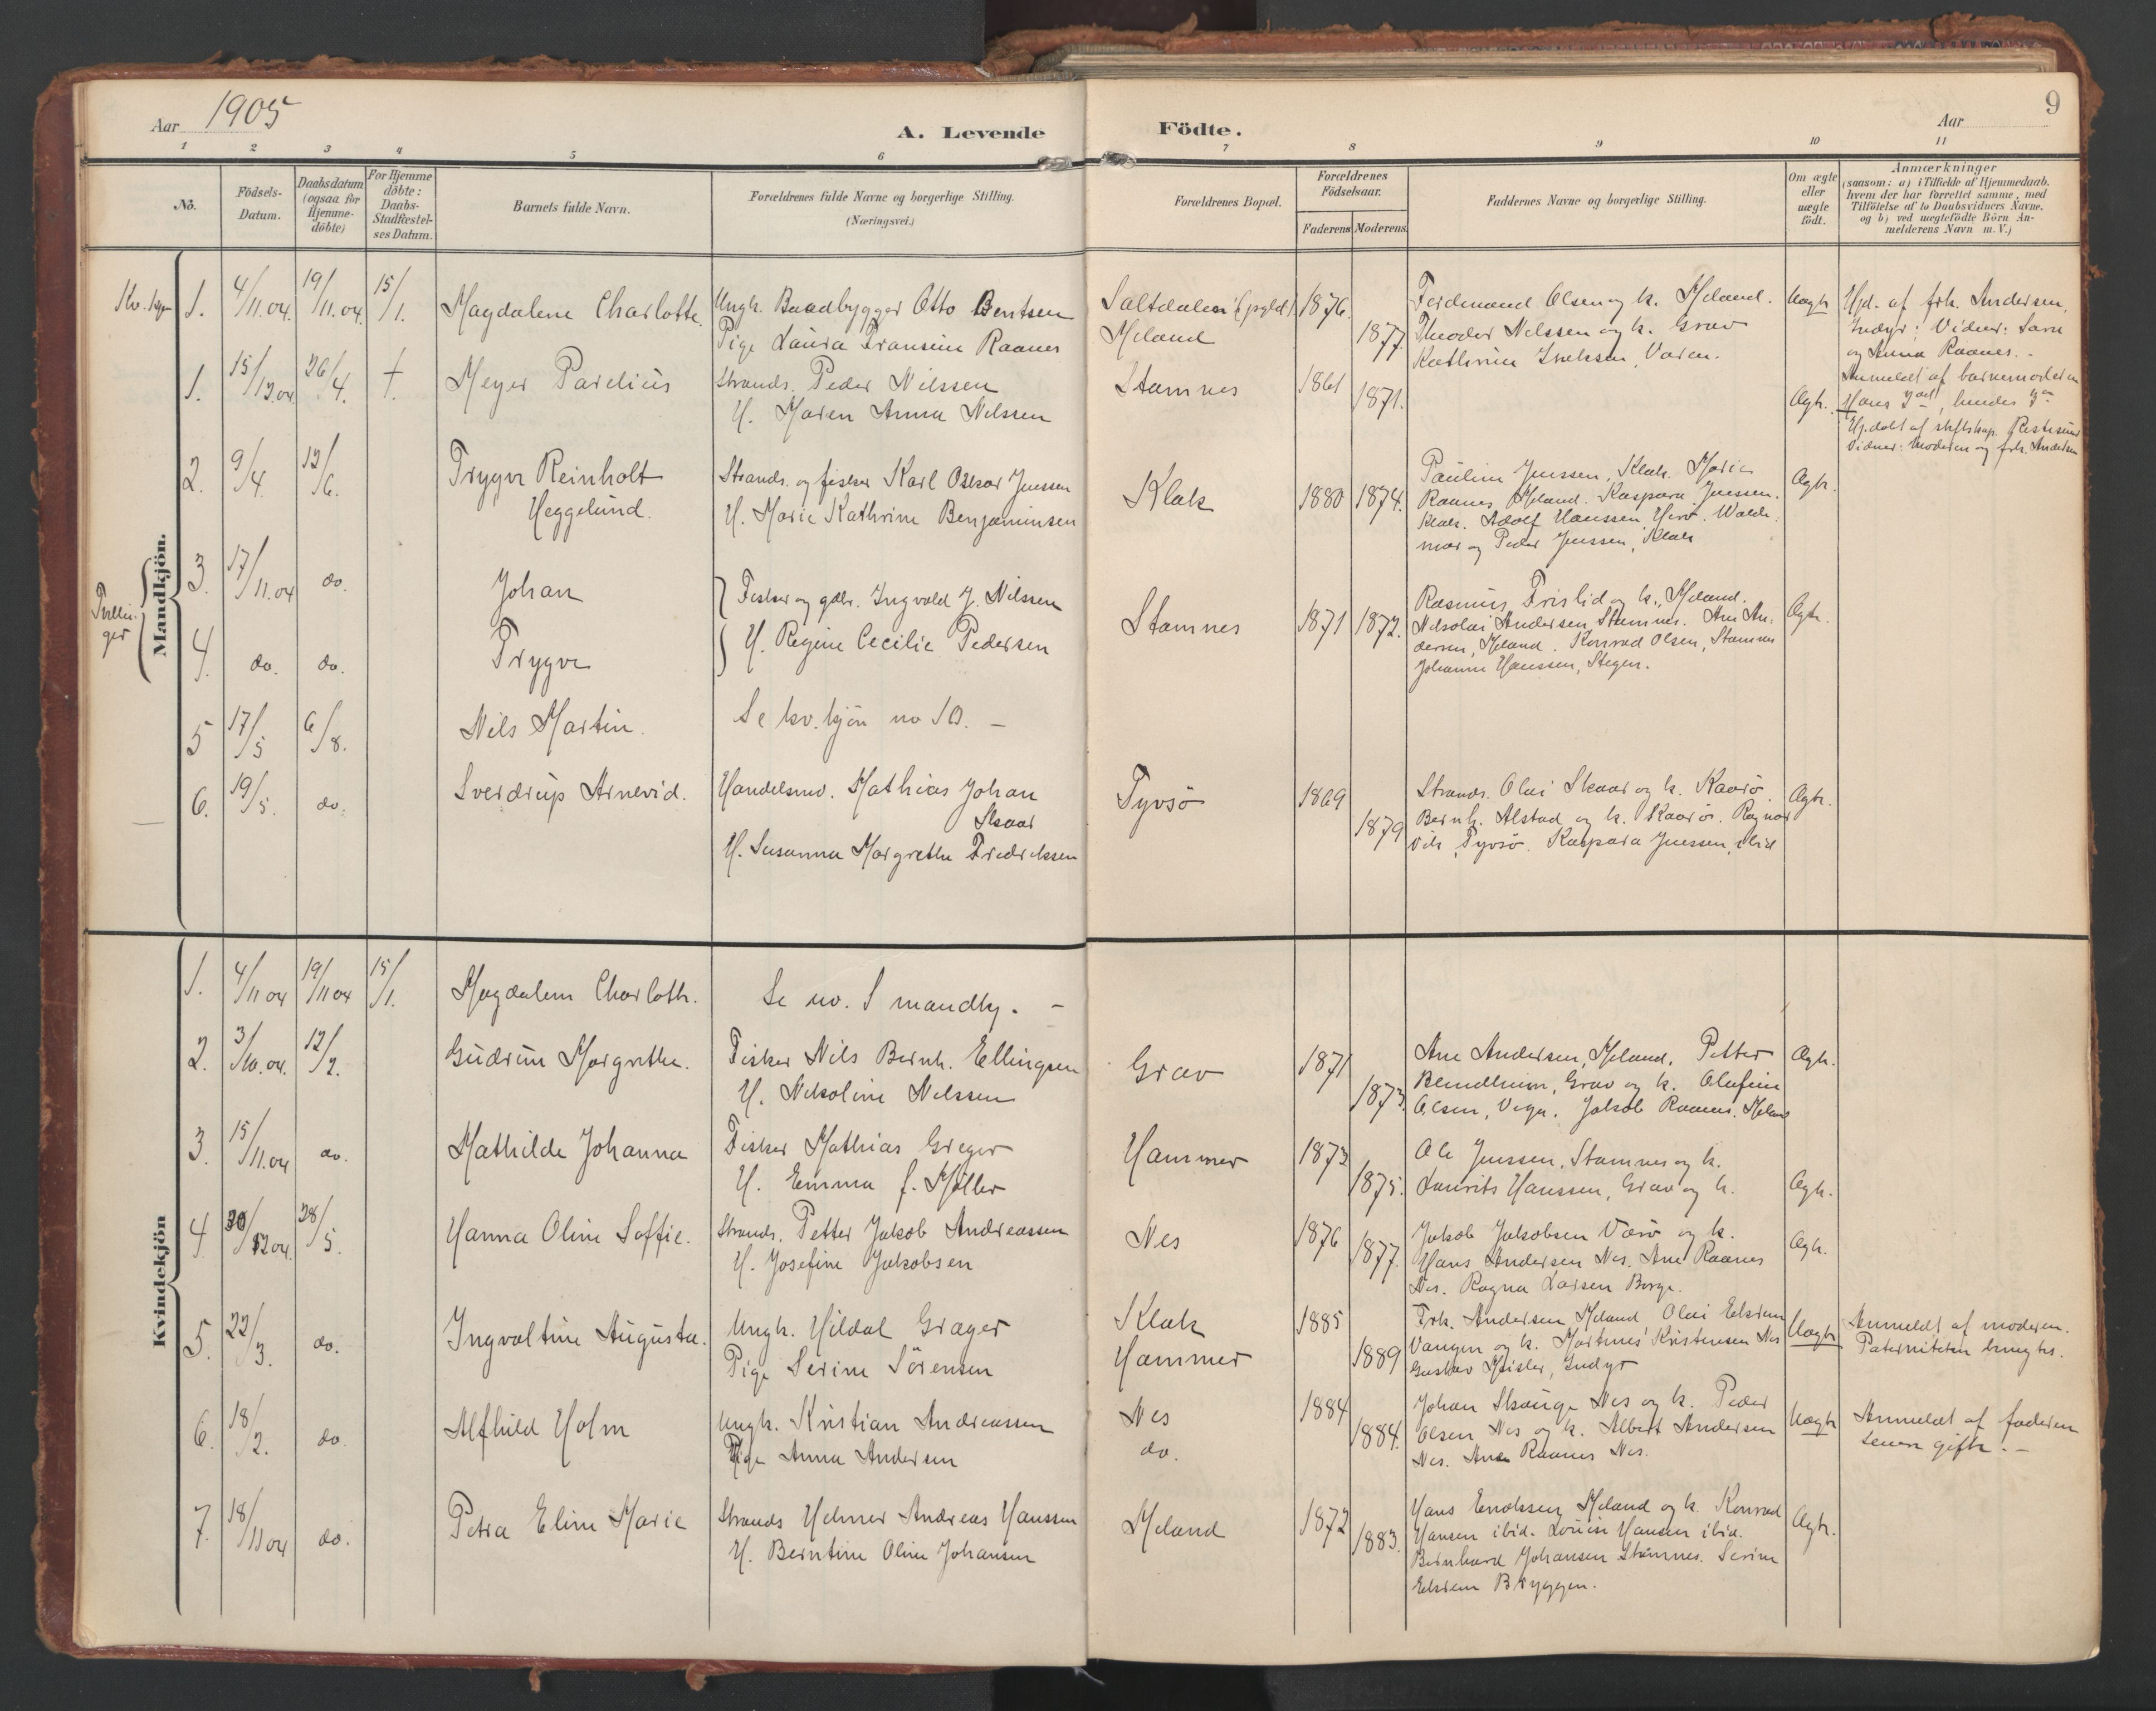 Aar 1905
A. Levende Födte.
Aar
9
1 2 3 4 5 6 7 8 9 10 11
No.
Födsels-Datum.
Daabsdatum (ogsaa for Hjemme-döbte)
For Hjemme döbte: Daabs-Stadfæstel-ses Datum.
Barnets fulde Navn.
Forældrenes fulde Navne og borgerlige Stilling.
(Næringsvei.)
Forældrenes Bopæl.
Forældrenes Födselsaar.
Faderens Moderens
Faddernes Navne og borgerlige Stilling.
Om ægte eller uægte födt.
Anmærkninger
(saasom: a) i Tilfælde af Hjemmedaab.
hvem der har forrettet samme, med
Tilföielse af to Daabsvidners Navne.
og b) ved uægtefödte Börn An-
melderens Navn m. V.)
Mandkjön.
1. 4/11.04. 19/11.04. 15/1. Magdalene Charlotte. Ungk. Baadbygger Otto Bentsen
Pige Laura Fransine Raanes
Saltdalen
Meland
1876. 1877.
Ferdinand Olsen og k. Meland.
Theodor Nilssen og k. Grav
Uægte
Hjd. af frk. Andersen,
Indyr: Vidner:
og Anna Raanes. -
Anmeldt af barnemoderen
1. 15/12.04 26/4. † Meyer Parelius Strands. Peder Nilssen
H. Maren Anna Nilssen
Stamnes 1861 1871. Ægte.
Hans 3die, hendes
Vidner: Moderen og frk. Andersen
2. 9/4. 12/6. Trygve Reinholt
Heggelund.
Strands. og fisker Karl Oskar Jenssen
H. Marie Kathrine Benjaminsen
Klak 1880 1874.
Pauline Jenssen, Klak. Marie
Raanes, Meland. Kaspara Jenssen.
Klak. Adolf Hanssen, Waldemar
og Peder Jenssen, Klak
Ægte.
Tvillinger
3. 17/11.04 do. Johan
Fisker og gdbr. Ingvald J. Nilssen
4. do. do. Trygve
H. Regine Cecilie Pedersen
Stamnes 1871 1872.
Rasmus Frislid og k., Meland.
Nikolai Andersen, Stamnes. Ane An-
dersen, Meland. Konrad Olsen, Stamnes
Johanne Hanssen, Stegen.
Ægte.
5 17/5 6/8. Nils Martin. Se kv. kjön no 10. -
6. 19/5. do. Sverdrup Arnevid. Handelsmd. Mathias Johan
Skaar
H. Susanna Margrethe Fredriksen
Tyvsö 1869 1879
Strands. Olai Skaar og k. Kaarö.
Bernh. Alstad og k. Kaarö. Ragna
Tyvsö. Kaspara Jenssen, ibid
Ægte.
Kvindekjön
1. 4/11 04 19/11 04 15/1. Magdalene Charlotte. Se no. 1 mandkj. -
2. 3/10.04. 12/2. Gudrun Margrethe. Fisker Nils Bernh. Ellingsen
H. Nikoline Nilssen
Grav 1871 1873.
Ane Andersen, Meland, Petter
Blindheim, Grav og k. Olufine
Olsen, Vega. Jakob Raanes, Meland
Ægte.
3. 15/11.04 do. Mathilde Johanna Fisker Mathias Greger
H. Emma f. Möller
Hammer 1873 1875.
Ole Jenssen, Stamnes og k.
Laurits Hanssen, Grav og k.
Ægte.
4. 30/12 04. 28/5. Hanna Oline Soffie. Strands. Petter Jakob Andreassen
H. Josefine Jakobsen
Nes 1876 1877.
Jakob Jakobsen Værö og k.
Hans Andersen Nes. Ane Raanes
Nes. Ragna Larsen Borge.
Ægte.
5. 22/3. do. Ingvaltine Augusta. Ungk. Hildal Græger
Pige Serine Sörensen
Klak
Hammer
1885 1889
Frk. Andersen Meland, Olai
Vangen og k. Martines Kristensen Nes
Gustav Meisler, Indyr
Uægte
Anmeldt af moderen.
Paterniteten benegtes.
6. 18/2. do. Alfhild Holm Ungk. Kristian Andreassen
Pige Anna Andersen
Nes
do.
1884 1884.
Johan Skauge Nes og k. Peder
Olsen Nes og k. Albert Andersen
Nes. Ane Raanes Nes.
Uægte
Anmeldt af faderen
senere gifte. -
7. 18/11 04 do. Petra Eline Marie Strands Helmer Andreas Hanssen
H. Berntine Oline Johansen
Meland 1872 1883.
Hans Enoksen, Meland og k. Konrad
Hansen ibid. Louise Hansen ibid.
Bernhard Johansen Stamnes. Serine
Bryggen.
Ægte.